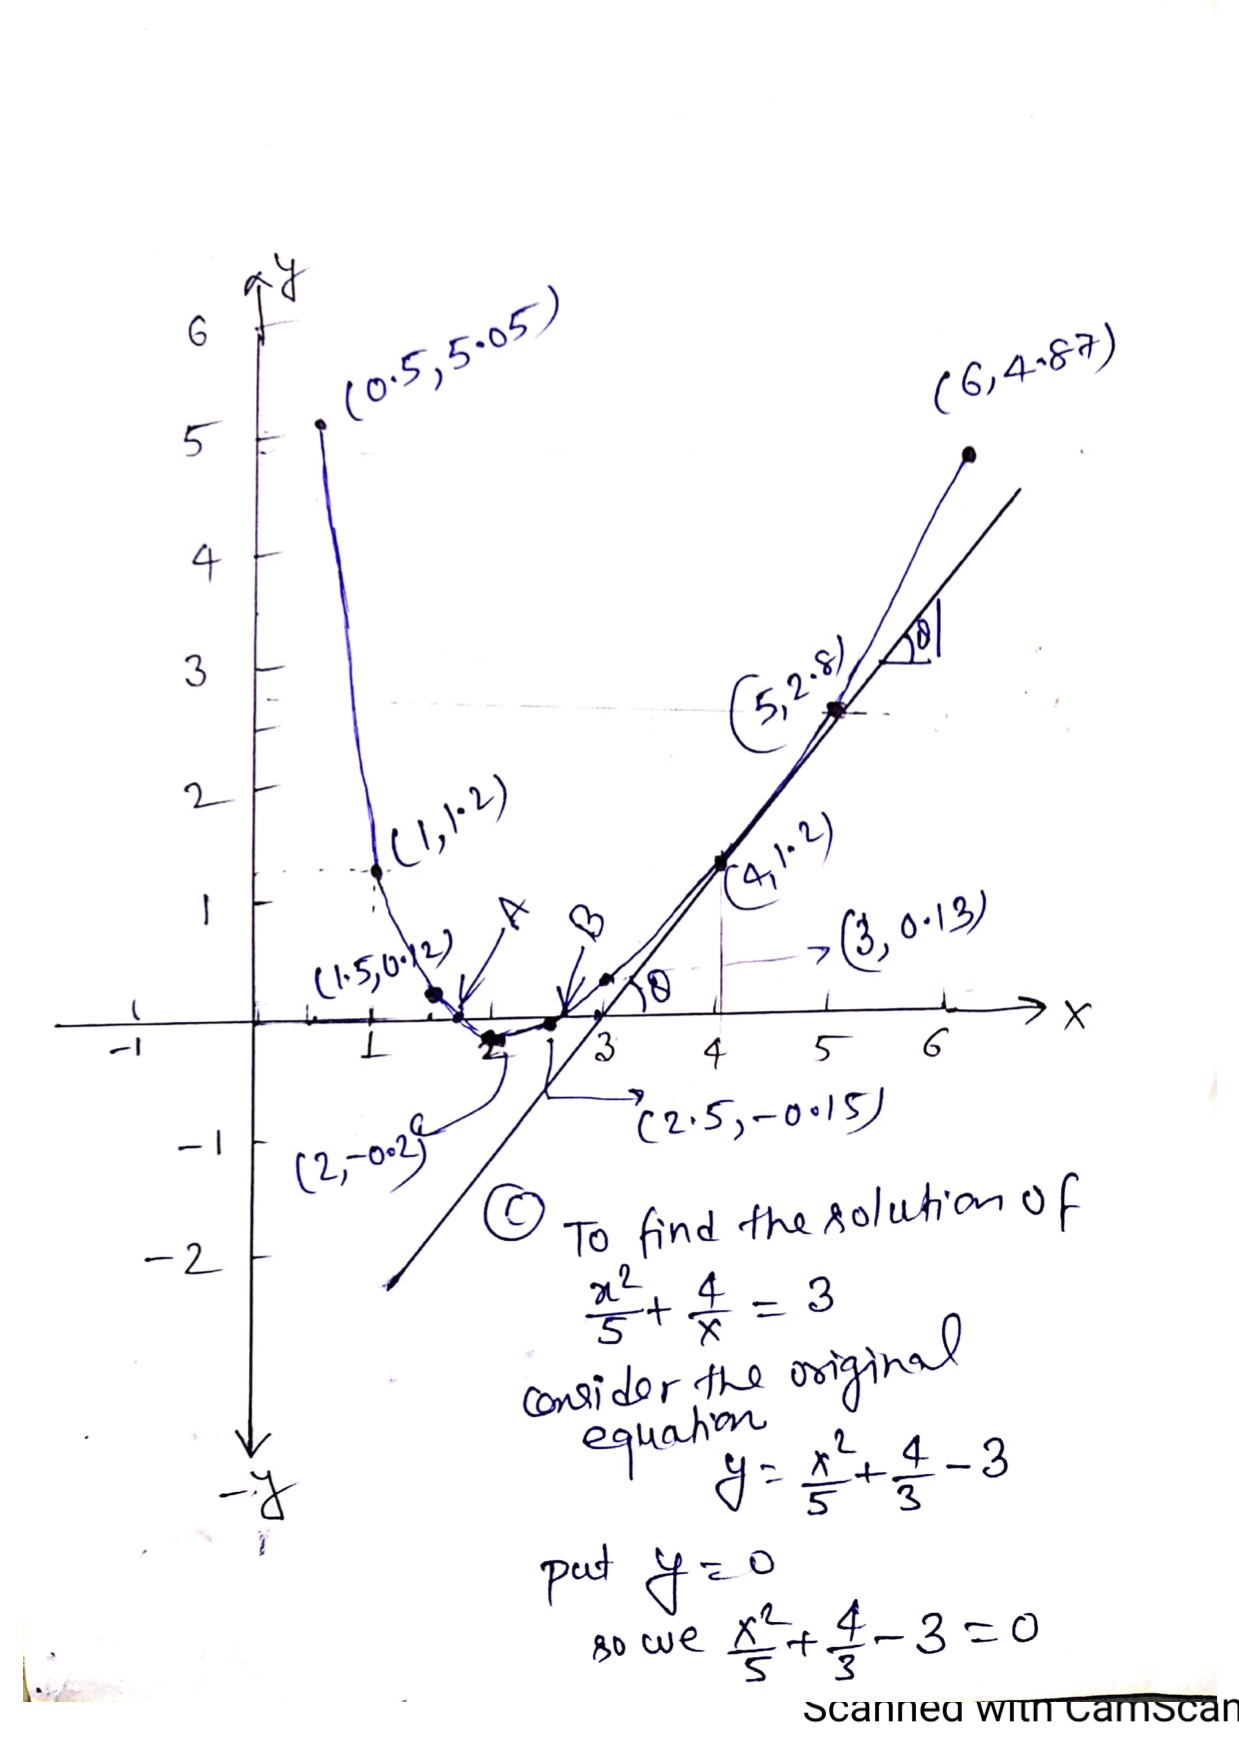 y
6
(0.5, 5.05)
(6, 4.87)
5
4
3
(5, 2.8)
θ
2
(1, 1.2)
(4, 1.2)
1
A
B
(3, 0.13)
(1.5, 0.12)
θ
x
-1
1
2
3
4
5
6
(2.5, -0.15)
-1
(2, -0.2)
C To find the solution of
x²/5 + 4/x = 3
consider the original
equation
y = x²/5 + 4/3 - 3
-2
-y
put y = 0
so we x²/5 + 4/3 - 3 = 0